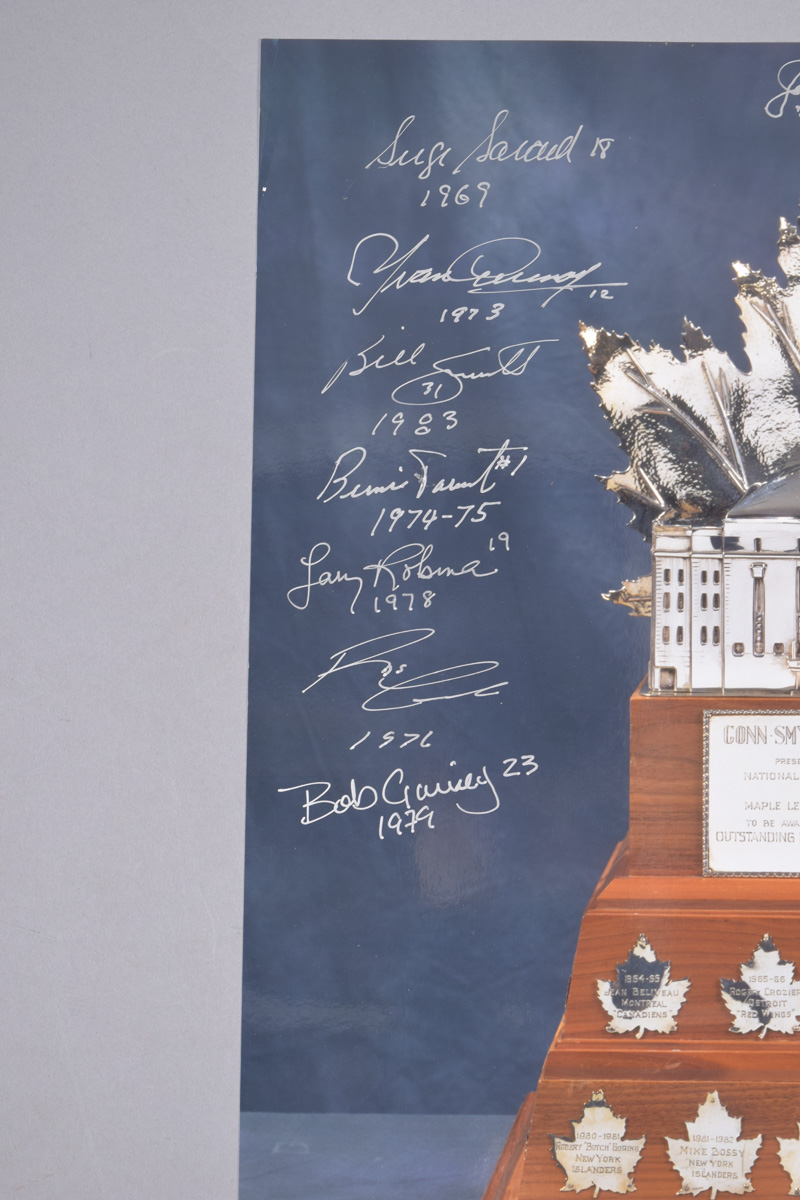 Serge Savard 18
1969
Yvan Cournoyer 12
1973
Bill Smith
31
1983
Bernie Parent #1
1974-75
Larry Robinson 19
1978
1976
Bob Gainey 23
1979
CONN-SMY
PRESE
NATIONAL
MAPLE LE
TO BE AWA
OUTSTANDING
1964-65
JEAN BELIVEAU
MONTREAL
"CANADIENS"
1965-66
ROGER CROZIER
DETROIT
"RED WINGS"
1980-1981
ROBERT "BUTCH" GORING
NEW YORK
ISLANDERS
1981-1982
MIKE BOSSY
NEW YORK
ISLANDERS